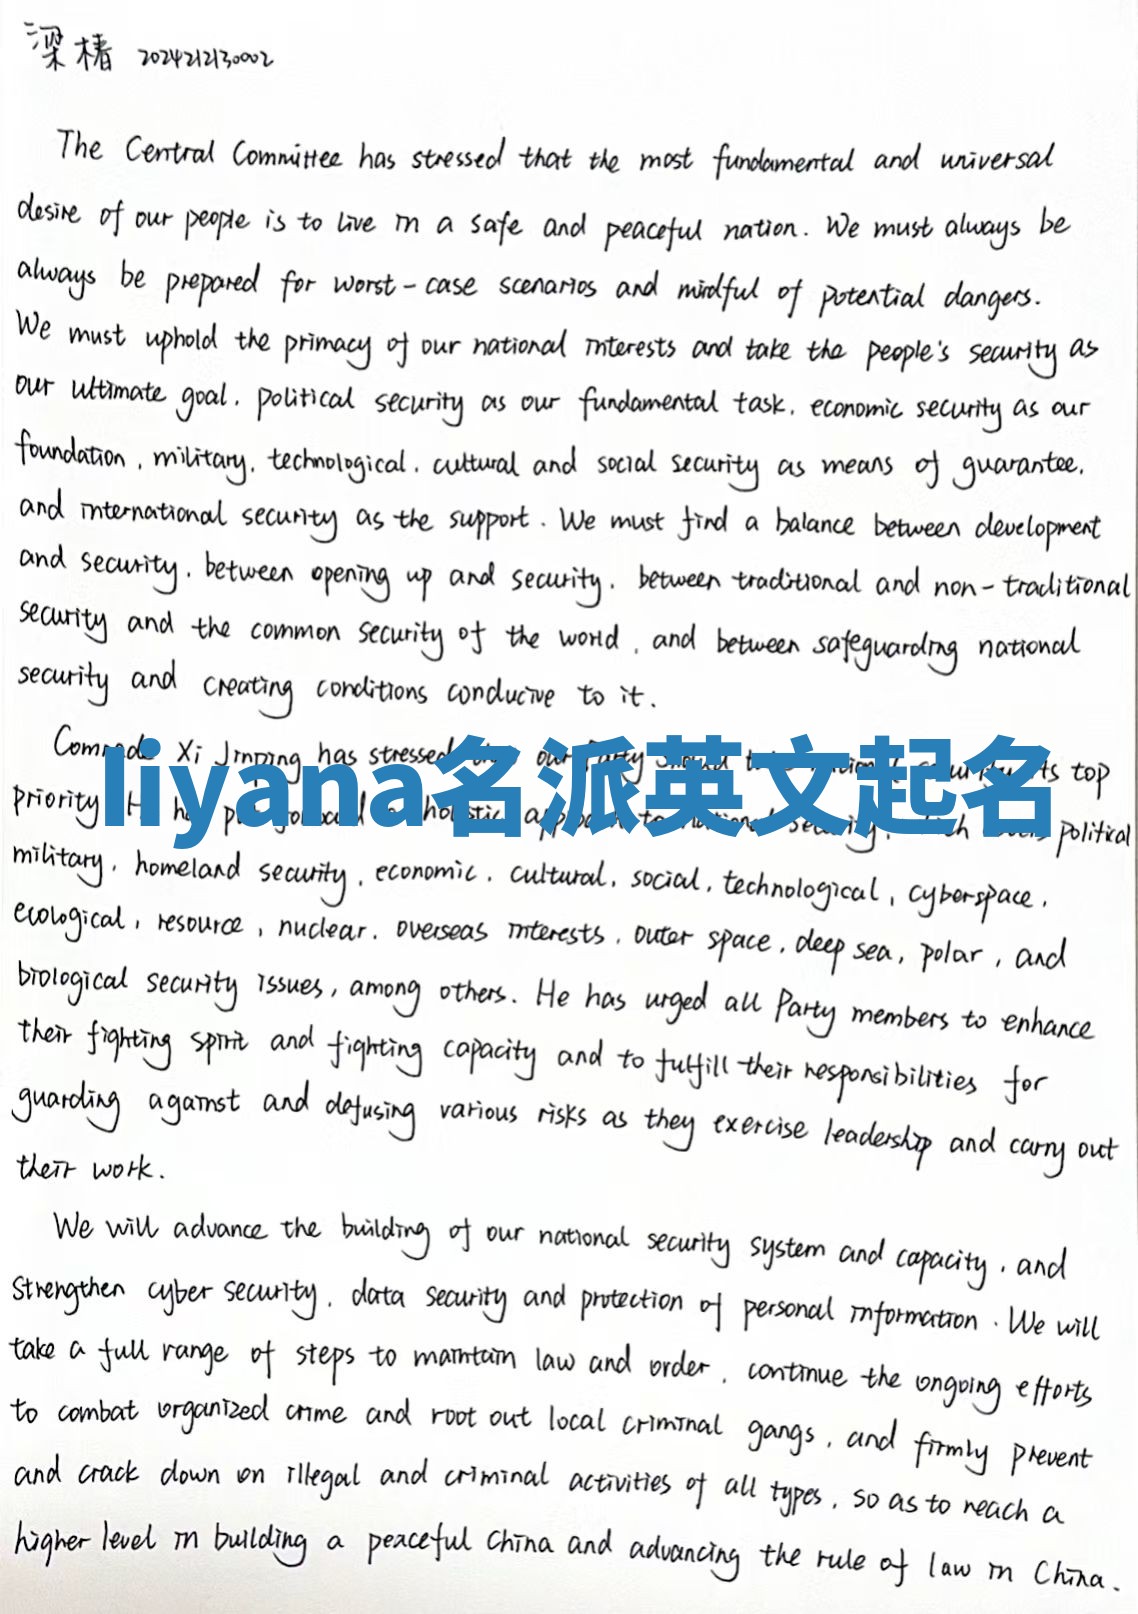 梁椿 2024212130002
The Central Committee has stressed that the most fundamental and universal
desire of our people is to live in a safe and peaceful nation. We must always be
always be prepared for worst-case scenarios and mindful of potential dangers.
We must uphold the primacy of our national interests and take the people's security as
our ultimate goal, political security as our fundamental task, economic security as our
foundation, military, technological, cultural and social security as means of guarantee,
and international security as the support. We must find a balance between development
and security, between opening up and security, between traditional and non-traditional
security and the common security of the world, and between safeguarding national
security and creating conditions conducive to it.
Comrade Xi Jinping has stressed our Party should top
liyana名派英文起名
priority. holistic to national security, political
military, homeland security, economic, cultural, social, technological, cyberspace,
ecological, resource, nuclear, overseas interests, outer space, deep sea, polar, and
biological security issues, among others. He has urged all Party members to enhance
their fighting spirit and fighting capacity and to fulfill their responsibilities for
guarding against and defusing various risks as they exercise leadership and carry out
their work.
We will advance the building of our national security system and capacity, and
strengthen cyber security, data security and protection of personal information. We will
take a full range of steps to maintain law and order, continue the ongoing efforts
to combat organized crime and root out local criminal gangs, and firmly prevent
and crack down on illegal and criminal activities of all types, so as to reach a
higher level in building a peaceful China and advancing the rule of law in China.